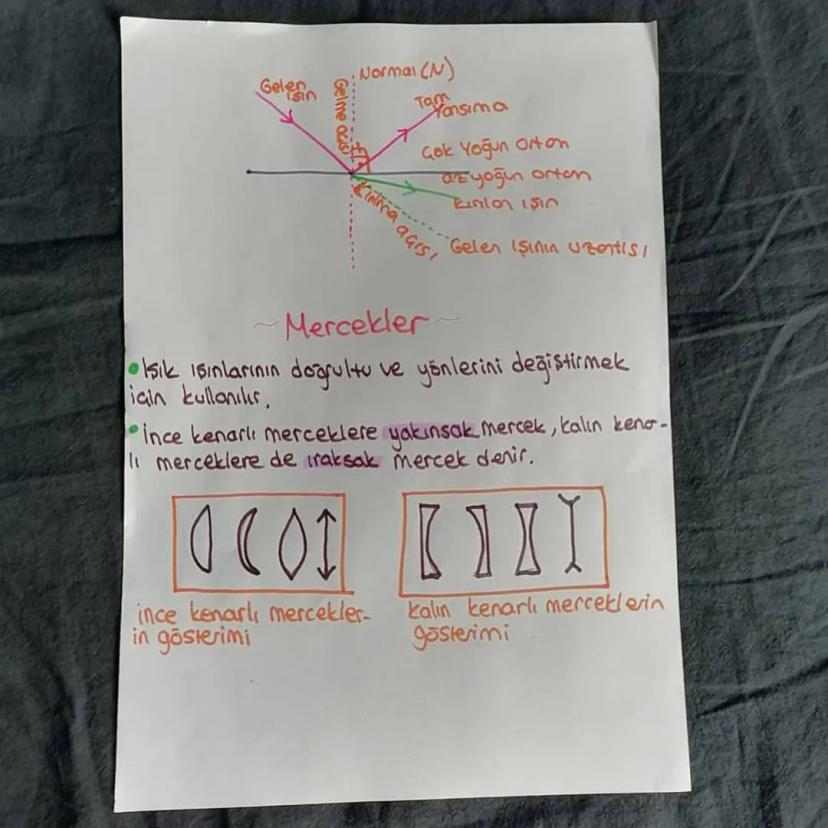 Normal (N)
Gelen
ışın
Gelme açısı
Tam
Yansıma
Çok Yoğun Ortam
az yoğun ortam
Kırılan ışın
Kırılma açısı
Gelen ışının uzantısı
~ Mercekler ~
• Işık ışınlarının doğrultu ve yönlerini değiştirmek
için kullanılır.
• İnce kenarlı merceklere yakınsak mercek, kalın kena-
lı merceklere de ıraksak mercek denir.
ince kenarlı mercekler-
in gösterimi
kalın kenarlı merceklerin
gösterimi